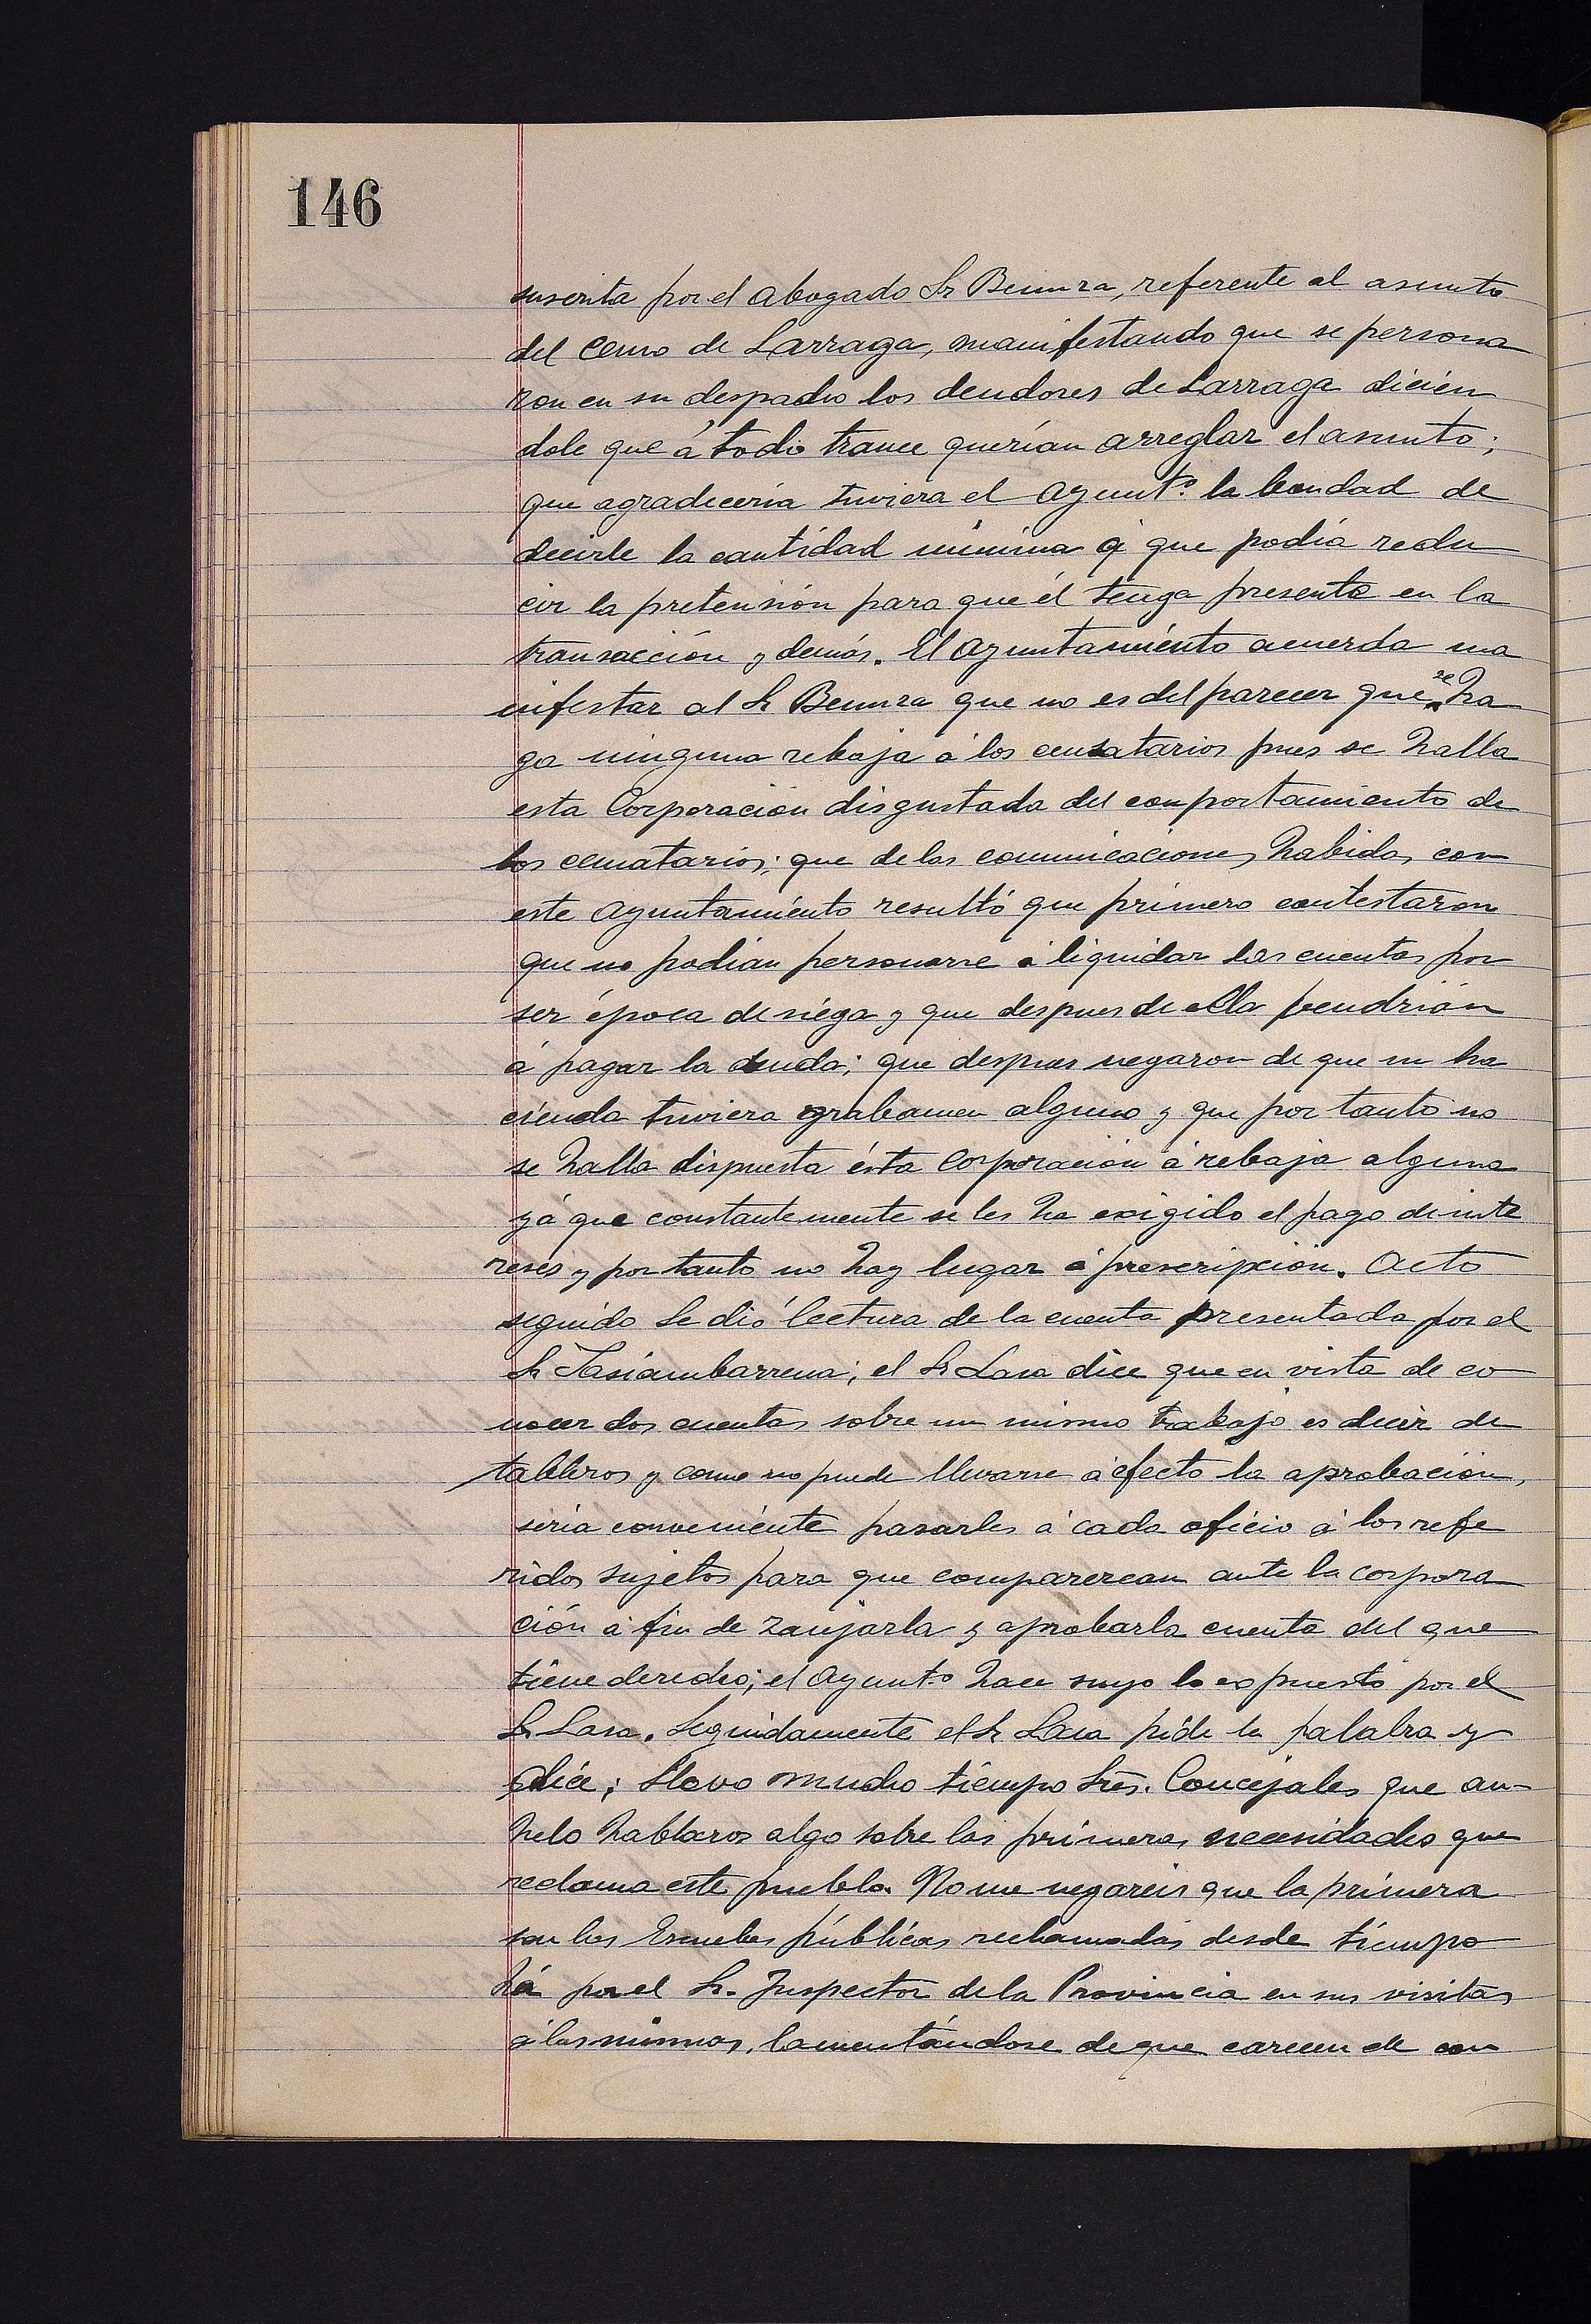 146
suscrita por el abogado Sr Beunza, referente al asunto
del censo de Larraga, manifestando que se persona
ron en su despacho los deudores de Larraga dicién
dole que á todo trance querían arreglar el asunto;
que agradecería tuviera el Ayunt.º la bondad de
decirle la cantidad mínima á que podía redu
cir la pretensión para que él tenga presente en la
transacción y demás. El Ayuntamiento acuerda ma
nifestar al Sr Beunza que no es del parecer que se ha
ga ninguna rebaja á los censatarios pues se halla
esta Corporación disgustada del comportamiento de
los censatarios; que de las comunicaciones habidas con
este Ayuntamiento resultó que primero contestaron
que no podían personarse á liquidar las cuentas por
ser época de siega y que despues de ella vendrián
á pagar la deuda; que despues negaron de que su ha
cienda tuviera grabamen alguno y que por tanto no
se halla dispuesta ésta Corporación á rebaja alguna
yá que constantemente se les ha exigido el pago de inte
reses y por tanto no hay lugar á prescripción. Acto
seguido se dió lectura de la cuenta presentada por el
Sr Tasiambarrena; el Sr Lasa dice que en vista de co
nocer dos cuentas sobre un mismo trabajo es decir de
tableros y como no puede llevarse á efecto la aprobación,
sería conveniente pasarles á cada oficio á los refe
ridos sujetos para que comparezcan ante la corpora
ción á fin de zanjarla y aprobarla cuenta del que
tiene derecho; el Ayunt.º hace suyo lo expuesto por el
Sr Lasa. Seguidamente el Sr Lasa pide la palabra y
dice; Llevo mucho tiempo Sres. Concejales que an-
helo hablaros algo sobre las primeras necesidades que
reclama este pueblo. No me negareis que la primera
son las Escuelas públicas reclamadas desde tiempo
há por el Sr. Inspector de la Provincia en sus visitas
á las mismas, lamentándose de que carecen de con